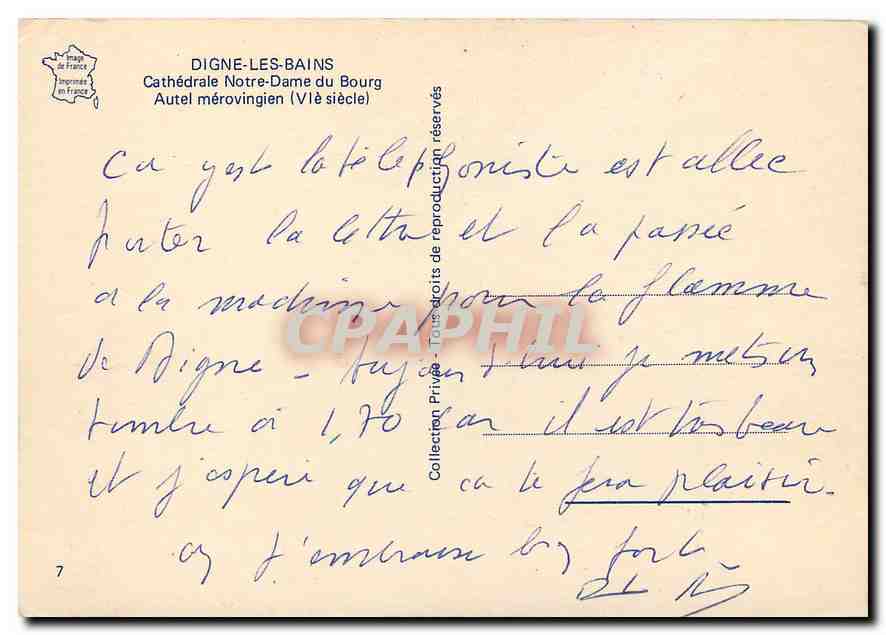 Image
de France
Imprimée
en France
DIGNE-LES-BAINS
Cathédrale Notre-Dame du Bourg
Autel mérovingien (VIè siècle)
Collection Privée - Tous droits de reproduction réservés
CPAPHIL
Ca yest la téléphoniste est allee
porter la lettre et la passée
a la machine pour la flamme
de Digne - aujourd'hui je mets un
timbre à 1,70 car il est très beau
et j'espere que ca te fera plaisir.
J'embrasse bien fort
7